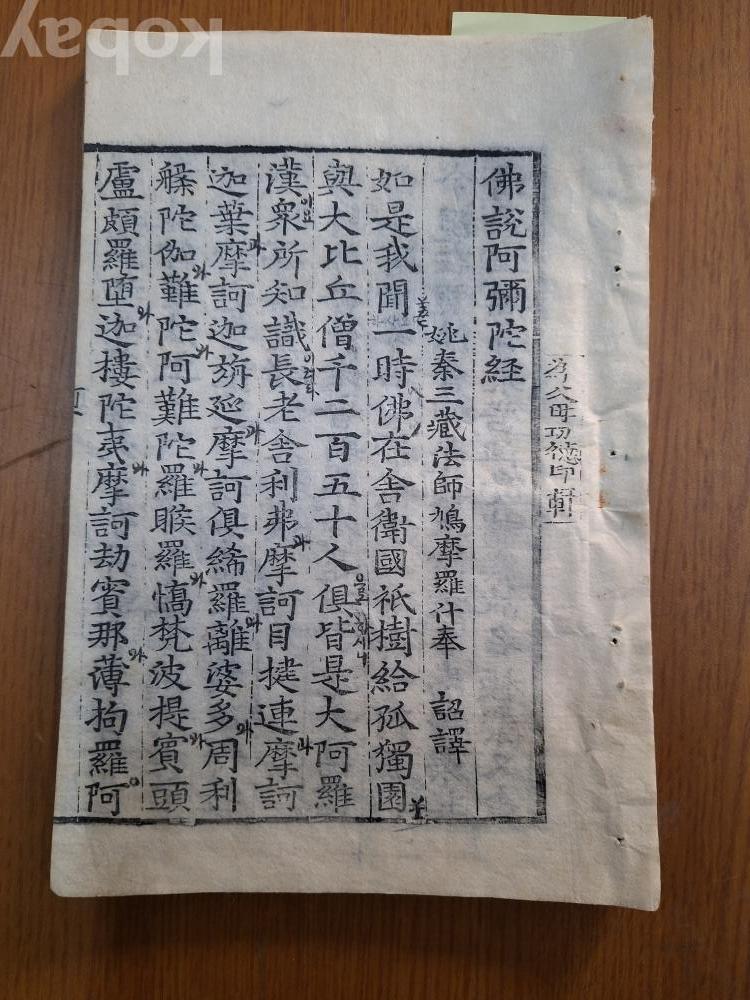 kobay
爲父母功德印軒
佛說阿彌陀経
姚秦三藏法師鳩摩羅什奉 詔譯
如是我聞一時佛在舍衛國祇樹給孤獨園
與大比丘僧千二百五十人俱皆是大阿羅
漢衆所知識長老舍利弗摩訶目揵連摩訶
迦葉摩訶迦旃延摩訶俱絺羅離婆多周利
槃陀伽難陀阿難陀羅睺羅憍梵波提賓頭
盧頗羅墮迦樓陀夷摩訶劫賓那薄拘羅阿